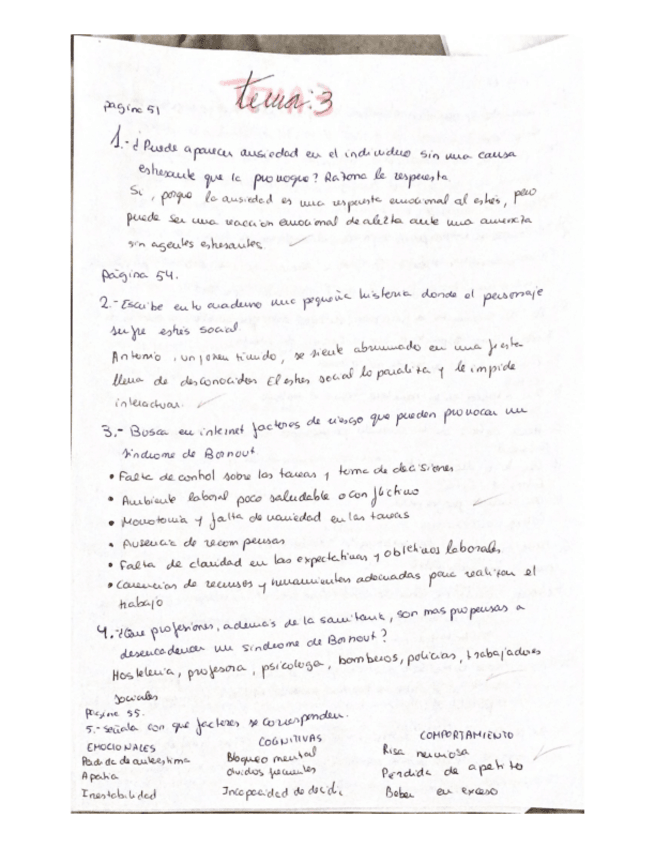 tema: 3
página 51
1.- ¿Puede aparecer ansiedad en el individuo sin una causa
estresante que la provoque? Razona la respuesta
Si, porque la ansiedad es una respuesta emocional al estrés, pero
puede ser una reacción emocional de alerta ante una amenaza
sin agentes estresantes
Página 54.
2.- Escribe en tu cuaderno una pequeña historia donde el personaje
sufre estrés social
Antonio, un joven tímido, se siente abrumado en una fiesta
llena de desconocidos El estrés social lo paraliza y le impide
interactuar.
3.- Busca en internet factores de riesgo que pueden provocar un
síndrome de Bornout
• Falta de control sobre las tareas y toma de decisiones
• Ambiente laboral poco saludable o conflictivo
• Monotonia y falta de variedad en las tareas
• Ausencia de recompensas
• Falta de claridad en las expectativas y objetivos laborales
• Carencias de recursos y adecuadas para realizar el
trabajo
4. ¿Que profesiones, además de la sanitaria, son mas propensas a
desencadenar un síndrome de Bornout?
Hosteleria, profesora, psicologa, bomberos, policias, trabajadores
sociales
Página 55.
5.- Señala con que factores se corresponden.
EMOCIONALES COGNITIVAS COMPORTAMIENTO
Perdida de autoestima Bloqueo mental Risa nerviosa
Apatia Olvidos frecuentes Perdida de apetito
Inestabilidad Incapacidad de decidir Beber en exceso